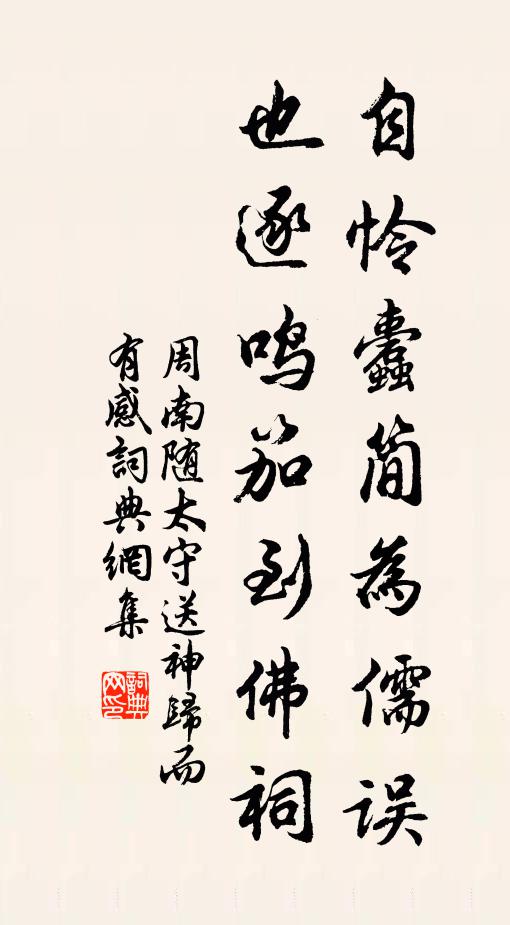 自怜蠹简為儒误
也逐鸣笳到佛祠
周南随太守送神歸而
有感詞典網集
詞典网印